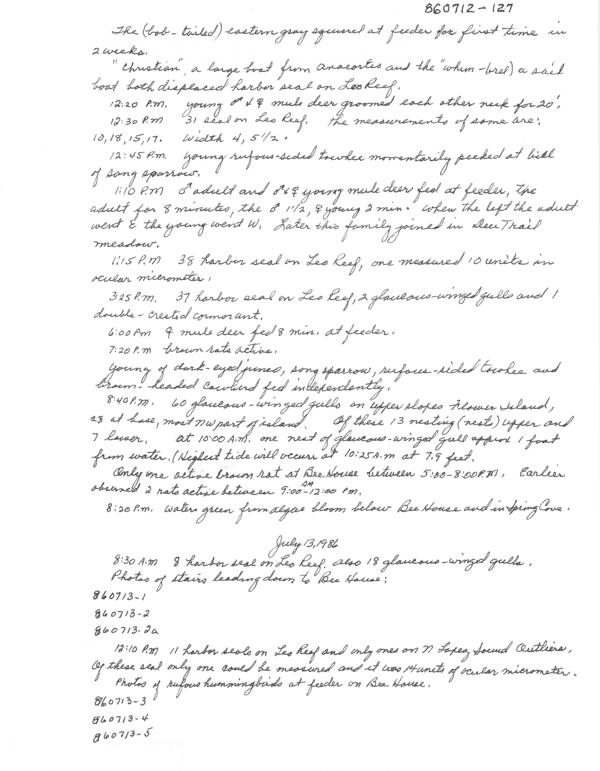 860712-127
The (bob-tailed) eastern gray squirrel at feeder for first time in
2 weeks.
"Christian", a large boat from Anacortes and the "whim-brel) a sail
boat both displaced harbor seal on Leo Reef.
12:20 P.M. young ♂ & ♀ mule deer groomed each other neck for 20'.
12:30 P.M 31 seal on Leo Reef. The measurements of some are:
10, 18, 15, 17. Width 4, 5½.
12:45 P.M. young rufous-sided towhee momentarily pecked at bill
of song sparrow.
1:10 P.M ♂ adult and ♂ & ♀ young mule deer fed at feeder, the
adult for 8 minutes, the ♂ 1½, ♀ young 2 min. When the left the adult
went E the young went W. Later this family joined in Deer Trail
meadow.
1:15 P.M 38 harbor seal on Leo Reef, one measured 10 units in
ocular micrometer.
3:25 P.M. 37 harbor seal on Leo Reef, 2 glaucous-winged gulls and 1
double-crested cormorant.
6:00 Pm ♀ mule deer fed 8 min. at feeder.
7:20 P.m brown rats active.
Young of dark-eyed junco, song sparrow, rufous-sided towhee and
brown-headed cowbird fed independently.
8:40 P.M. 60 glaucous-winged gulls on upper slopes Flower Island,
28 at base, most NW part of island. Of these 13 nesting (nests) upper and
7 lower. At 10:00 A.M. one nest of glaucous-winged gull approx 1 foot
from water. (Highest tide will occurr at 10:25 A.m at 7.9 feet.
Only one active brown rat at Bee House between 5:00-8:00 P.M. Earlier
observed 2 rats active between 9:00 AM-12:00 PM.
8:20 P.m. Water green from algae bloom below Bee House and in Spring Cove.
July 13, 1986
8:30 A.M 8 harbor seal on Leo Reef, also 18 glaucous-winged gulls.
Photos of stairs leading down to Bee House:
860713-1
860713-2
860713-2a
12:10 P.M 11 harbor seals on Leo Reef and only ones on N Lopez Sound Outliers.
Of these seal only one could be measured and it was 14 units of ocular micrometer.
Photos of rufous hummingbirds at feeder on Bee House.
860713-3
860713-4
860713-5